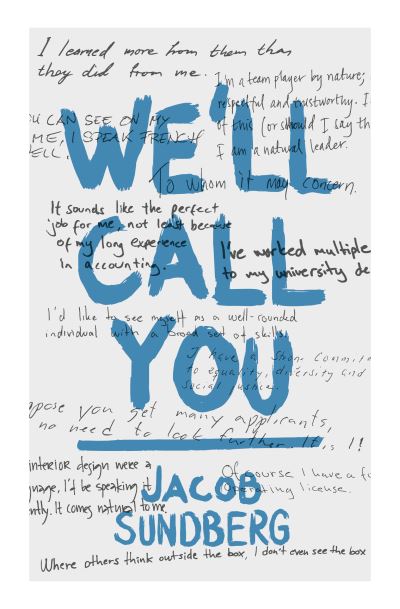 I learned more from them than
they did from me.
I'm a team player by nature;
respectful and trustworthy. I
of this (or should I say th
I am a natural leader.
OU CAN SEE ON MY
ME, I SPEAK FRENCH
ELL.
WE'LL
To whom it may concern.
It sounds like the perfect
job for me, not least because
of my long experience
in accounting.
CALL
I've worked multiple
to my university de
I'd like to see myself as a well-rounded
individual with a broad set of skills.
YOU
I have a strong commitm
to equality, diversity and
social justice.
pose you get many applicants,
no need to look further. It is I!
interior design were a
guage, I'd be speaking it
ntly. It comes natural to me.
Of course I have a fo
operating license.
JACOB
SUNDBERG
Where others think outside the box, I don't even see the box